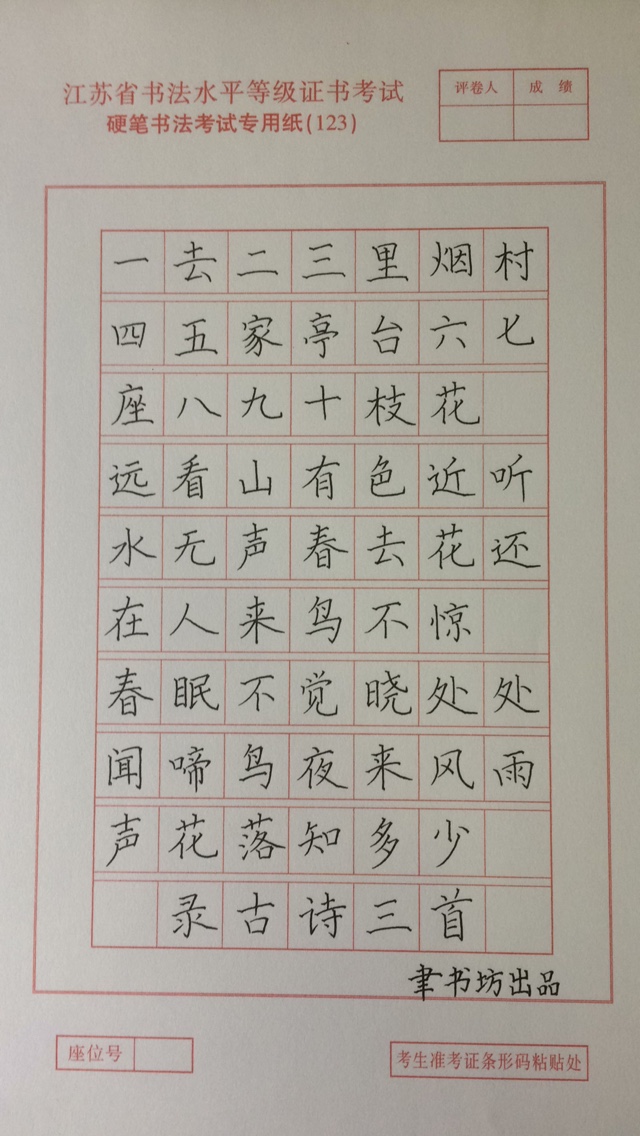 江苏省书法水平等级证书考试
硬笔书法考试专用纸(123)
评卷人 成绩
一去二三里烟村
四五家亭台六七
座八九十枝花
远看山有色近听
水无声春去花还
在人来鸟不惊
春眠不觉晓处处
闻啼鸟夜来风雨
声花落知多少
录古诗三首
聿书坊出品
座位号
考生准考证条形码粘贴处